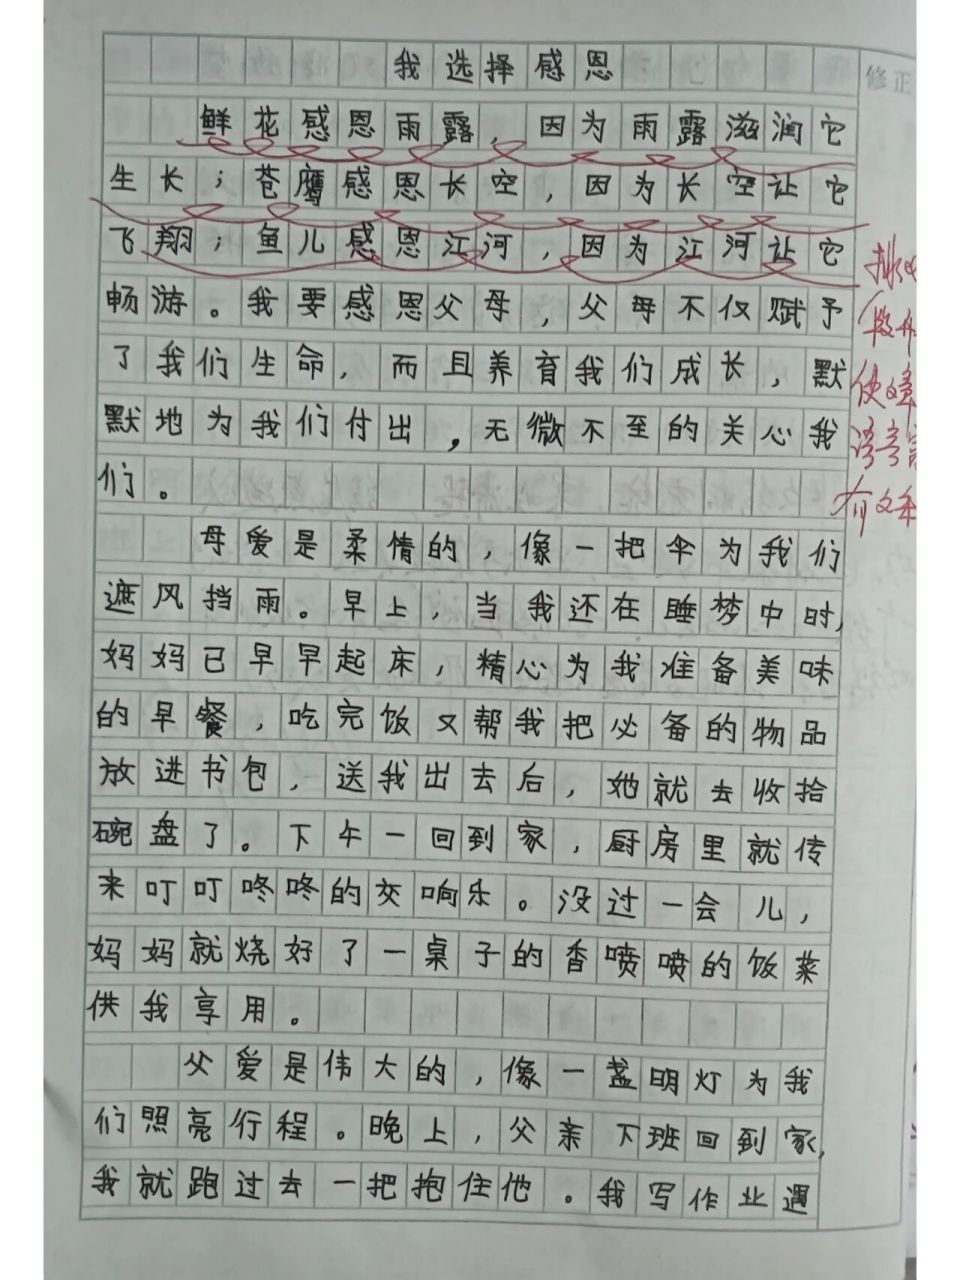 我选择感恩
修正
鲜花感恩雨露，因为雨露滋润它
生长；苍鹰感恩长空，因为长空让它
飞翔；鱼儿感恩江河，因为江河让它
畅游。我要感恩父母，父母不仅赋予
了我们生命，而且养育我们成长，默
默地为我们付出，无微不至的关心我
们。
母爱是柔情的，像一把伞为我们
遮风挡雨。早上，当我还在睡梦中时，
妈妈已早早起床，精心为我准备美味
的早餐，吃完饭又帮我把必备的物品
放进书包，送我出去后，她就去收拾
碗盘了。下午一回到家，厨房里就传
来叮叮咚咚的交响乐。没过一会儿，
妈妈就烧好了一桌子的香喷喷的饭菜
供我享用。
父爱是伟大的，像一盏明灯为我
们照亮行程。晚上，父亲下班回到家，
我就跑过去一把抱住他。我写作业遇
排
使文章
语言
有文采